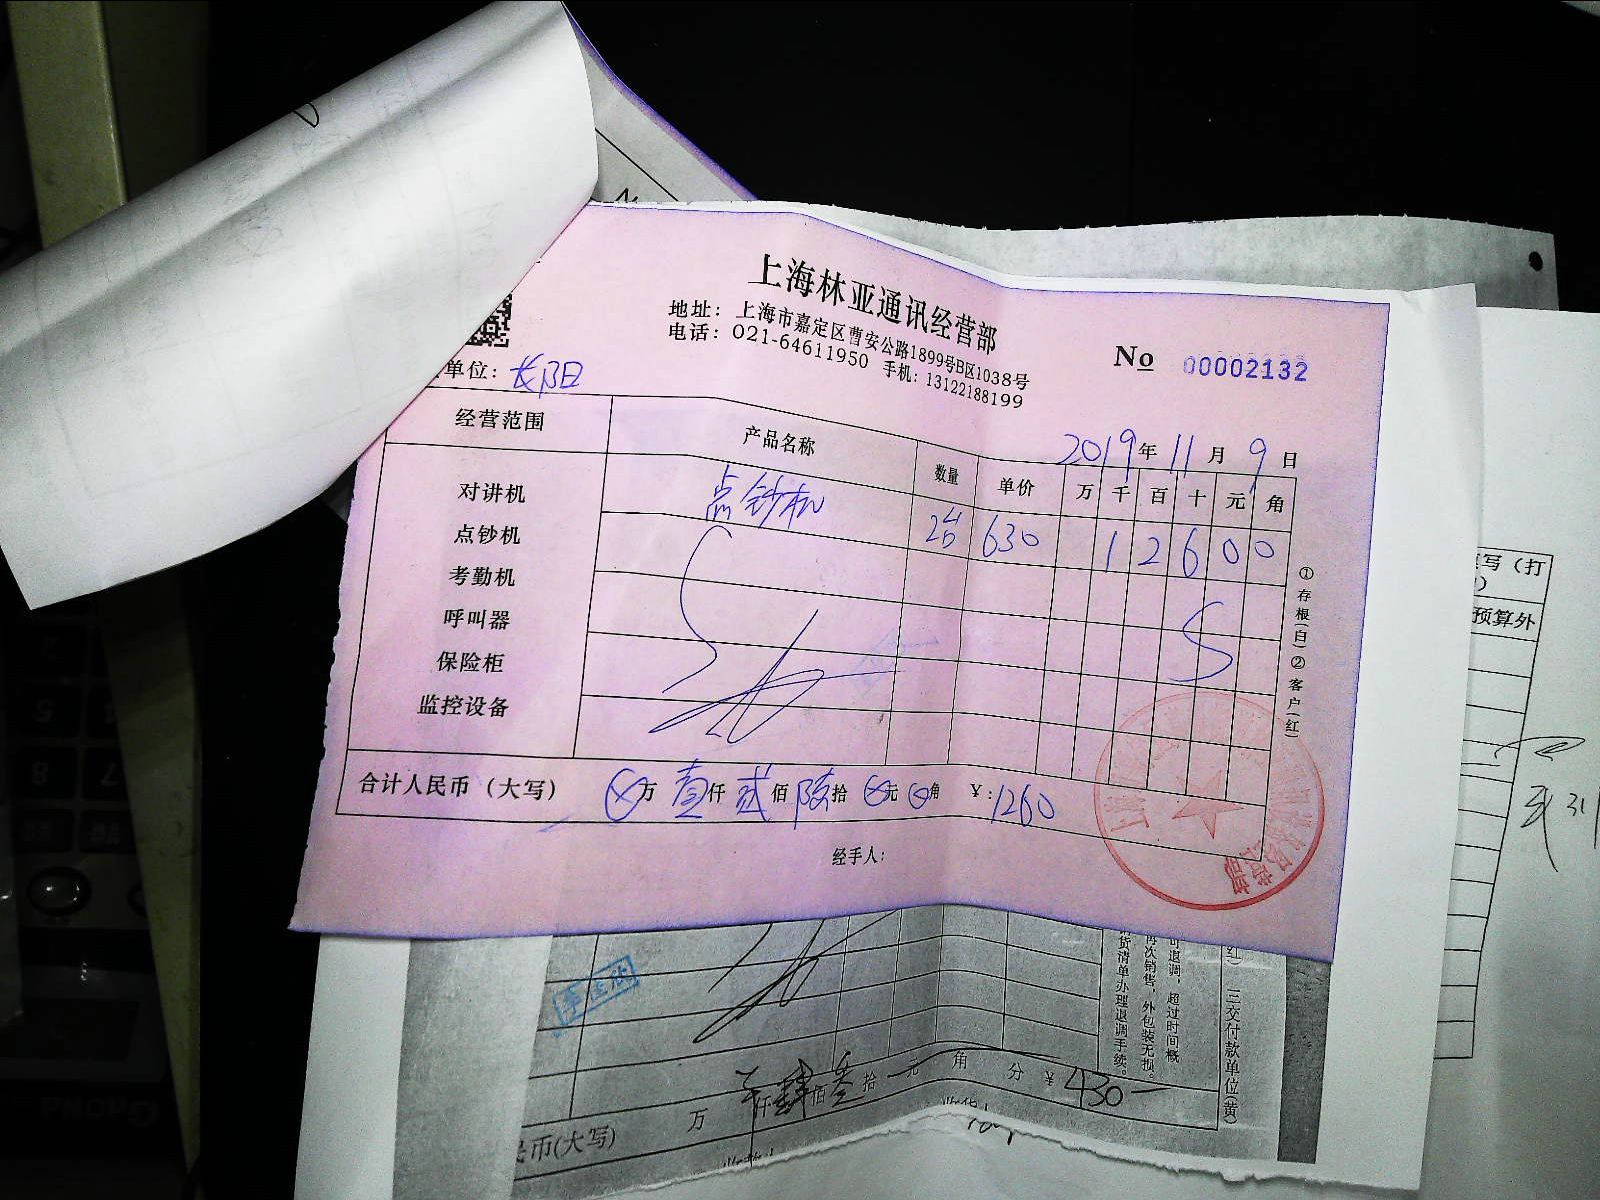 上海林亚通讯经营部
地址：上海市嘉定区曹安公路1899号B区1038号
电话：021-64611950 手机：13122188199
No 00002132
单位：长阳
2019年11月9日
经营范围 产品名称 数量 单价 万 千 百 十 元 角
对讲机
点钞机
考勤机
呼叫器
保险柜
监控设备
点钞机 2台 630 1 2 6 0 0
①存根(白)②客户(红)
合计人民币（大写） ⊗万壹仟贰佰陆拾⊗元⊗角 ¥:1260
经手人:
写（打
预算外
货清单办理退调手续。
再次销售，外包装无损。
可退调，超过时间概
红) 三交付款单位(黄)
万 仟肆佰叁拾 元 角 分 ¥430
民币(大写)